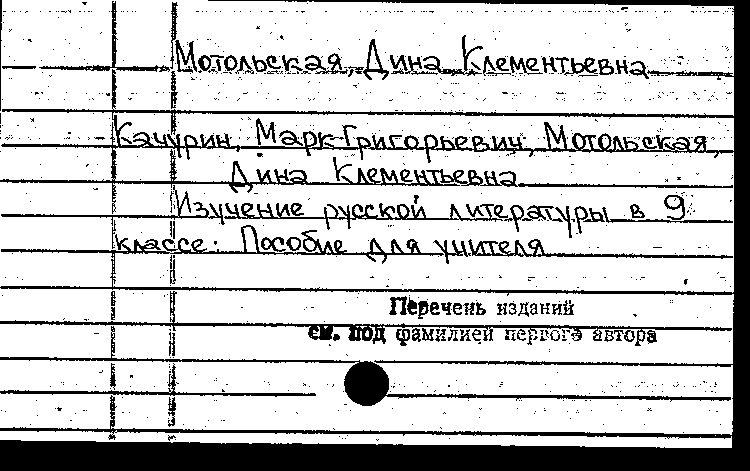 Мотольская, Дина Клементьевна
Качурин, Марк Григорьевич, Мотольская,
Дина Клементьевна
Изучение русской литературы в 9
классе: Пособие для учителя
Перечень изданий
см. под фамилией первого автора